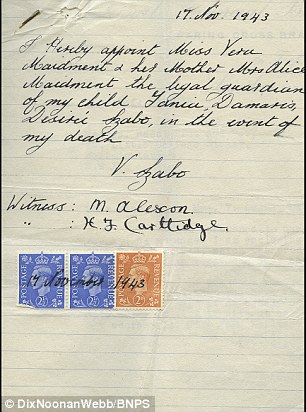 17. Nov. 1943
I Hereby appoint Miss Vera
Maidment & her Mother Mrs Alice
Maidment the legal guardian
of my child Tania, Damaris,
Desireé Szabo, in the event of
my death
V. Szabo
Witness: M. Alexon.
" : H. J. Carttidge.
POSTAGE REVENUE POSTAGE REVENUE POSTAGE REVENUE
2½ 2½ 2
17 November 1943
© DixNoonanWebb/BNPS